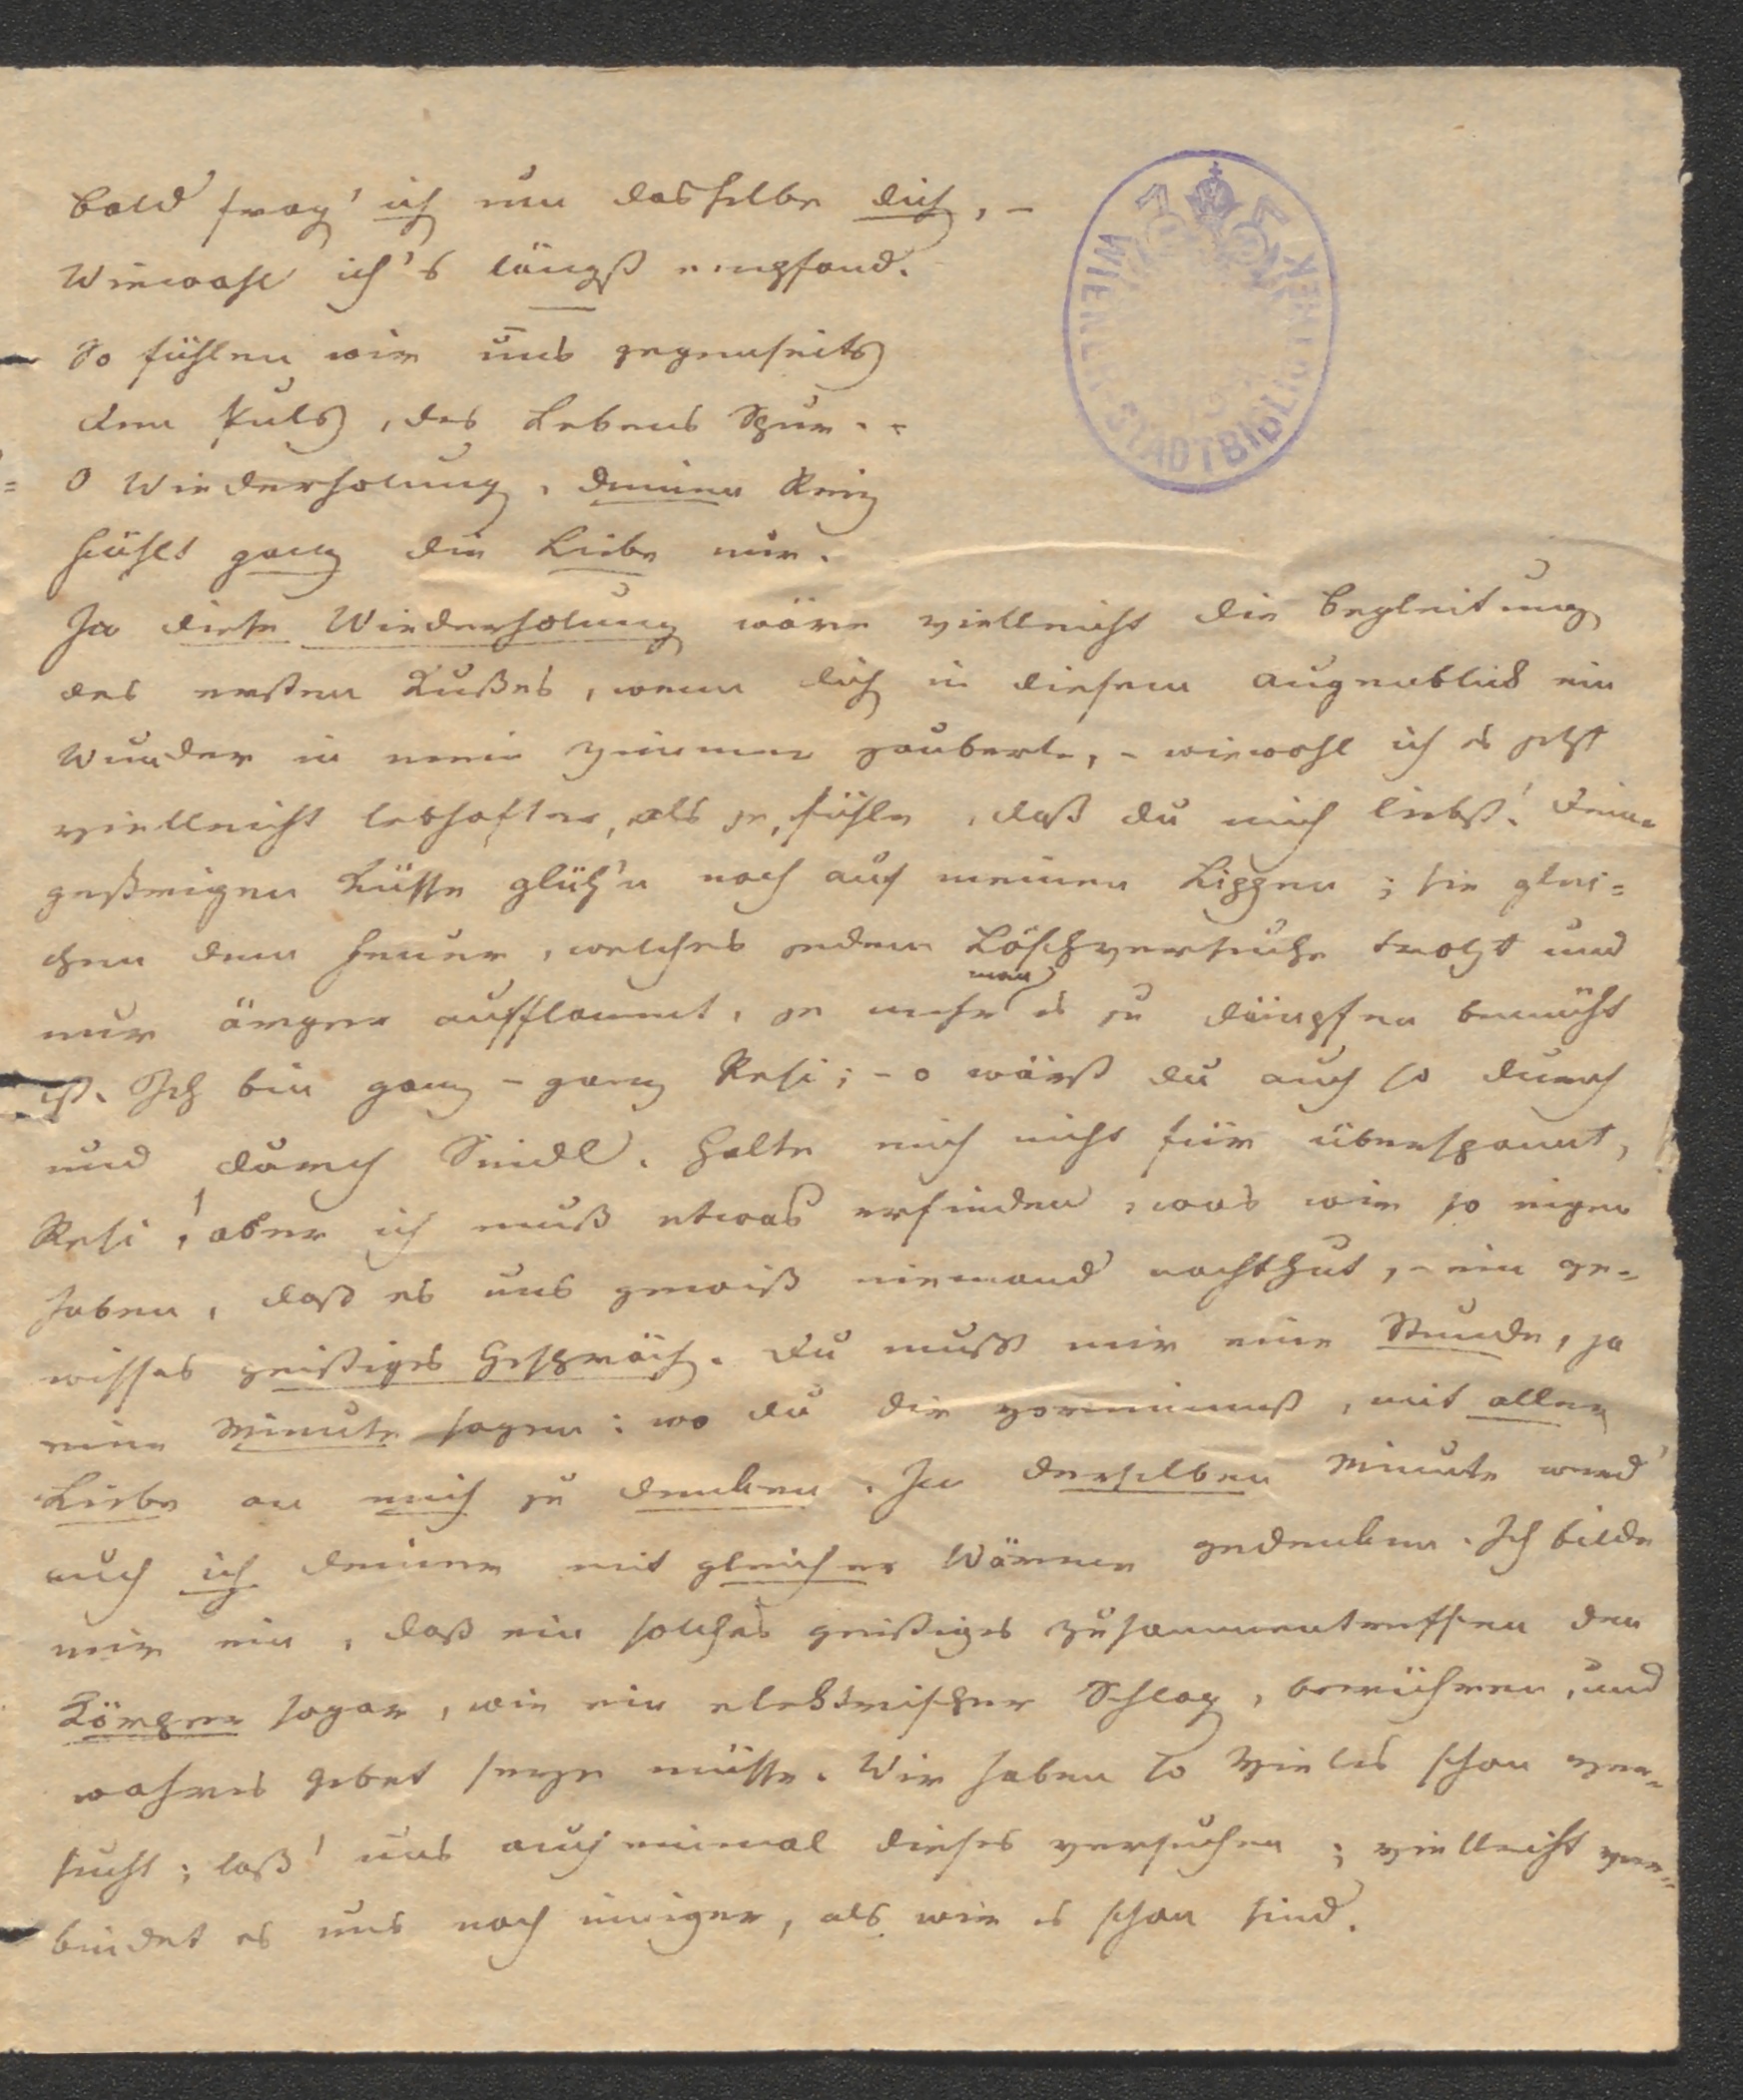 bald frag' ich nun dasselbe dich, –
Wiewohl ich's längst empfand.
So fühlen wir uns gegenseits
den Puls, des Lebens Spur. -
O Wiederholung, deinen Reiz
fühlt ganz die Liebe nur.
Ja diese Wiederholung wäre vielleicht die Begleitung
des ersten Kußes, wenn dich in diesem Augenblick ein
Wunder in mein Zimmer zauberte, – wiewohl ich es jetzt
vielleicht lebhafter, als je, fühle, daß du mich liebst! Deine
gestrigen Küsse glüh'n noch auf meinen Lippen; sie glei=
chen dem Feuer, welches jedem Löschversuche trotzt und
man
nur ärger aufflammt, je mehr es zu dämpfen bemüht
ist. Ich bin ganz – ganz Resi; – o wärst du auch so durch
und durch Seidl. Halte mich nicht für überspannt,
Resi! aber ich muß etwas erfinden, was wir so eigen
haben, daß es uns gewiß niemand nachthut, – ein ge=
wisses geistiges Gespräch. Du mußt mir eine Stunde, ja
eine Minute sagen: wo du dir vornimmst, mit aller
Liebe an mich zu denken. In derselben Minute werd'
auch ich deiner mit gleicher Wärme gedenken. Ich bilde
mir ein, daß ein solches geistiges Zusammentreffen den
Körper sogar, wie ein elektrischer Schlag, berühren, und
wahres Gebet seyn müsse. Wir haben so Vieles schon ver=
sucht; laß' uns auch einmal dieses versuchen; vielleicht ver=
bindet es uns noch inniger, als wir es schon sind.
WIENER STADTBIBLIOTHEK